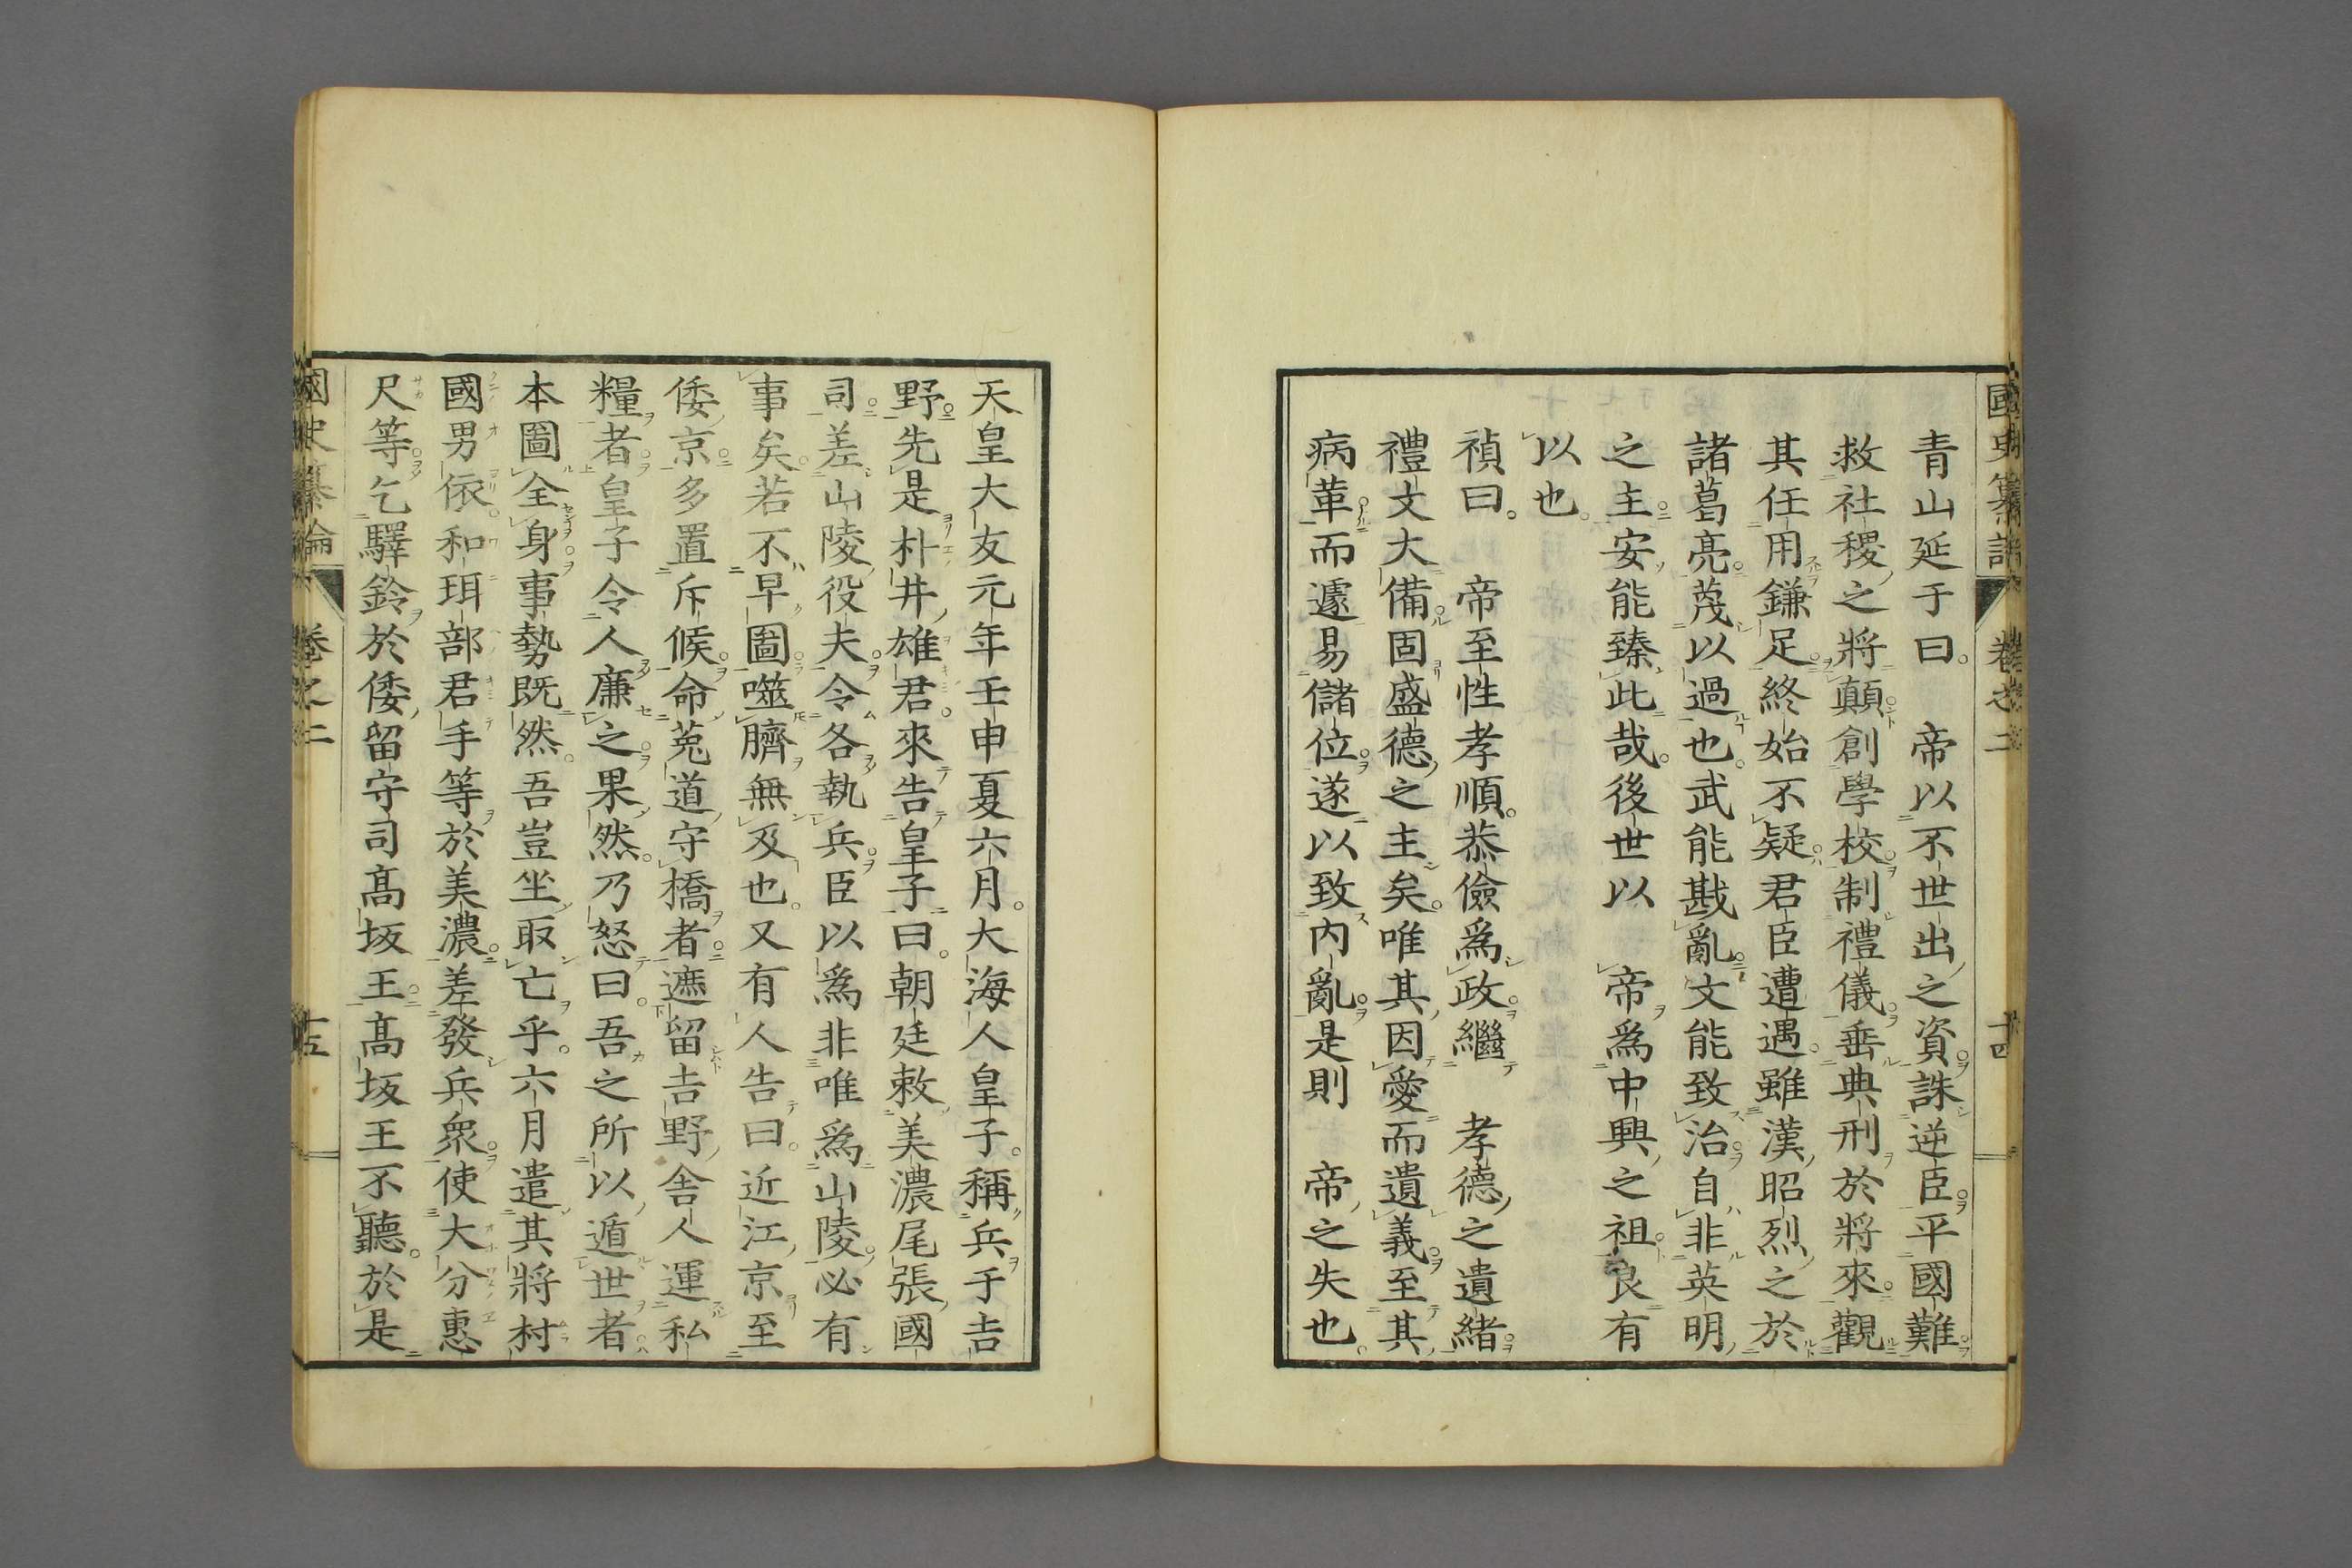 國史纂論 卷之二 十四
青山延于曰。 帝以不世出之資。誅逆臣。平國難。
救社稷之將顛。創學校。制禮儀。垂典刑於將來。觀
其任用鎌足。終始不疑。君臣遭遇。雖漢昭烈之於
諸葛亮。蔑以過也。武能戡亂。文能致治。自非英明
之主。安能臻此哉。後世以 帝爲中興之祖。良有
以也。
禎曰。 帝至性孝順。恭儉爲政。繼 孝德之遺緒。
禮文大備。固盛德之主矣。唯其因愛而遺義。至其
病革而遽易儲位。遂以致内亂。是則 帝之失也。
天皇大友元年壬申夏六月。大海人皇子。稱兵于吉
野。先是朴井雄君。來告皇子曰。朝廷敕美濃尾張國
司。差山陵役夫。令各執兵。臣以爲非唯爲山陵。必有
事矣。若不早圖。噬臍無及也。又有人告曰。近江京至
倭京。多置斥候。命菟道守橋者。遮留吉野舍人運私
糧者。皇子令人廉之。果然。乃怒曰。吾之所以遁世者。
本圖全身。事勢既然。吾豈坐取亡乎。六月遣其將村
國男依。和珥部君手等於美濃。差發兵衆。使大分惠
尺等。乞驛鈴於倭留守司髙坂王。髙坂王不聽。於是
國史纂論 卷之二 十五